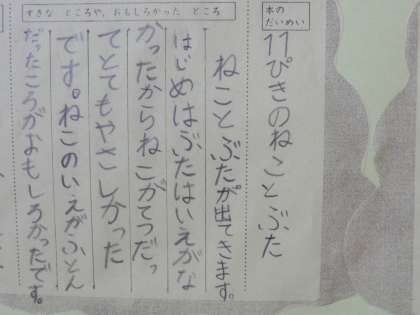 本の
だいめい
11ぴきのねことぶた
すきな ところや、おもしろかった ところ
ねことぶたが出てきます。
はじめはぶたはいえがな
かったからねこがてつだっ
てとてもやさしかった
です。ねこのいえがふとん
だったころがおもしろかったです。